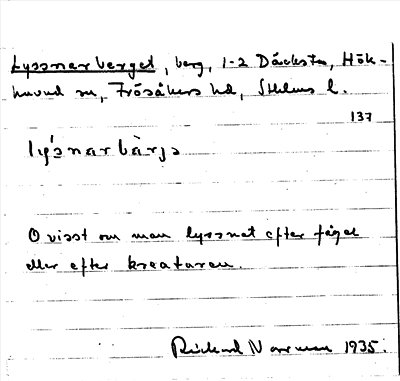 Lyssnarberget, berg, 1-2 Däcksta, Hök-
huvud sn, Frösåkers hd, Sthlms l.
137
lý̷snarbàrjə
Ovisst om man lyssnat efter fågel
eller efter kreaturen.
Rickard Norrman 1935.